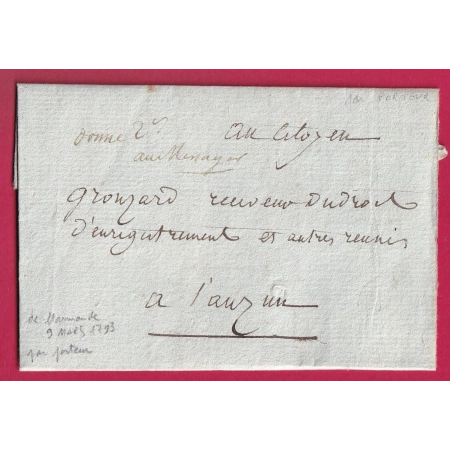 donné 2s. au Citoyen
au Messager
Grouzard receveur du droit
d'enregistrement et autres reunis
a Lauzun
de Marmande
9 MARS 1793
par porteur